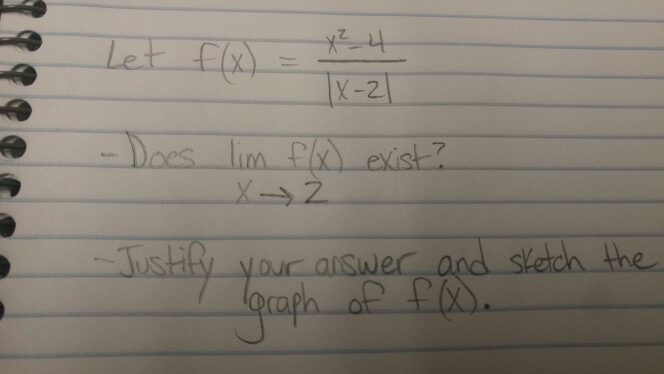 Let f(x) = x²-4 / |x-2|
- Does lim f(x) exist?
x → 2
- Justify your answer and sketch the
graph of f(x).